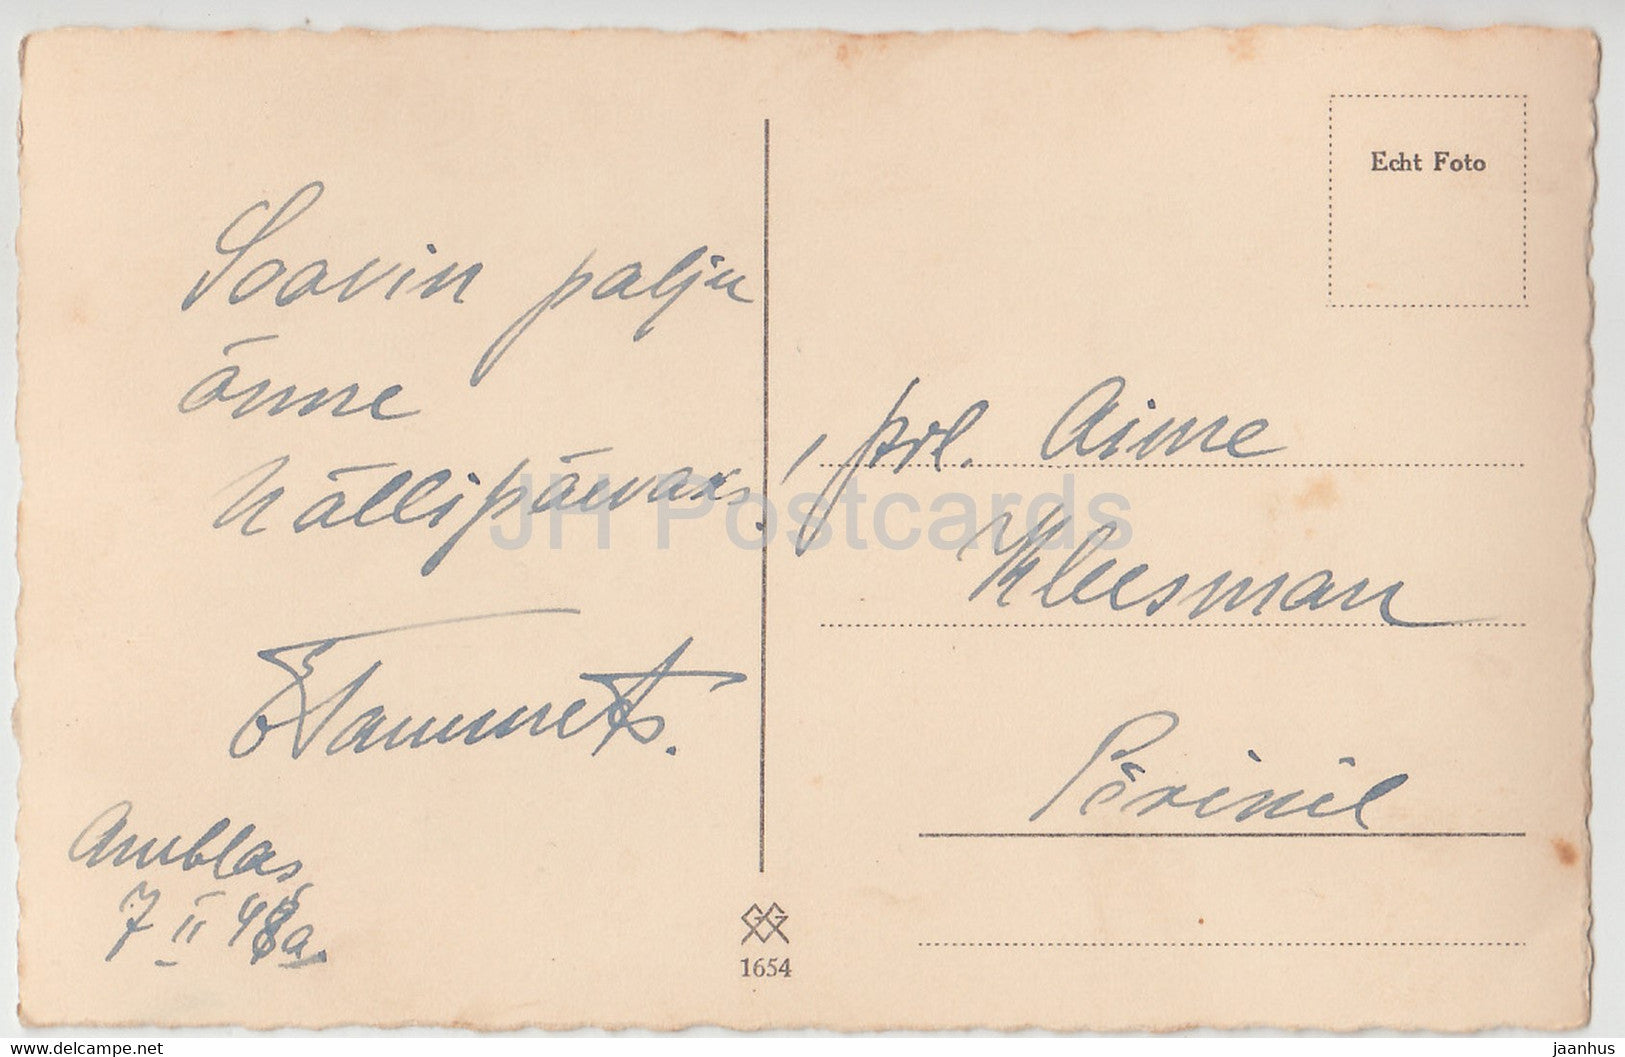 Soovin palju
õnne
hällipäevaks!
ETammets.
Amblas,
7 II 48a.
Echt Foto
prl. Aime
Kleesman
Pärinil
1654
JH Postcards
www.delcampe.net
jaanhus